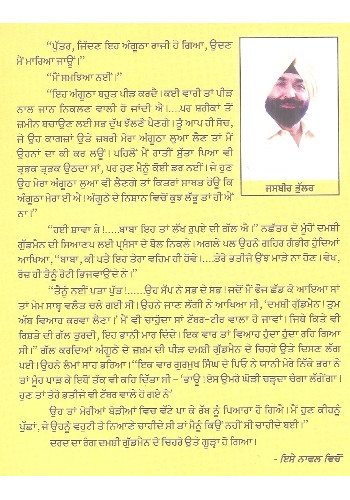 "ਪੁੱਤਰ, ਜਿੱਦਣ ਇਹ ਅੰਗੂਠਾ ਰਾਜੀ ਹੋ ਗਿਆ, ਉਦਣ
ਮੈਂ ਮਾਰਿਆ ਜਾਊਂ।"
"ਮੈਂ ਸਮਝਿਆ ਨਈਂ।"
"ਇਹ ਅੰਗੂਠਾ ਬਹੁਤ ਪੀੜ ਕਰਦੈ। ਕਈ ਵਾਰੀ ਤਾਂ ਪੀੜ
ਨਾਲ ਜਾਨ ਨਿਕਲਣ ਵਾਲੀ ਹੋ ਜਾਂਦੀ ਐ।....ਪਰ ਸ਼ਰੀਕਾਂ ਤੋਂ
ਜ਼ਮੀਨ ਬਚਾਉਣ ਲਈ ਸਭ ਦੁੱਖ ਝੱਲਣੇ ਪੈਣਗੇ। ਤੂੰ ਆਪ ਹੀ ਸੋਚ,
ਜੇ ਉਹ ਕਾਗਜ਼ਾਂ ਉਤੇ ਜ਼ਬਰੀ ਮੇਰਾ ਅੰਗੂਠਾ ਲੁਆ ਲੈਣ ਤਾਂ ਮੈਂ
ਉਹਨਾਂ ਦਾ ਕੀ ਕਰ ਲਊਂ। ਪਹਿਲੋਂ ਮੈਂ ਰਾਤੀਂ ਸੁੱਤਾ ਪਿਆ ਵੀ
ਤ੍ਰਭਕ ਤ੍ਰਭਕ ਉਠਦਾ ਸਾਂ, ਪਰ ਹੁਣ ਮੈਨੂੰ ਕੋਈ ਡਰ ਨਈਂ। ਜੇ ਹੁਣ
ਉਹ ਮੇਰਾ ਅੰਗੂਠਾ ਲੁਆ ਵੀ ਲੈਣਗੇ ਤਾਂ ਕਿਤਰਾਂ ਸਾਬਤ ਹੋਊ ਕਿ
ਅੰਗੂਠਾ ਮੇਰਾ ਈ ਐ। ਅੰਗੂਠੇ ਦੇ ਨਿਸ਼ਾਨ ਵਿਚੋਂ ਕੁਝ ਲੱਭੂ ਤਾਂ ਹੀ ਐਂ
ਨਾ।"
"ਹਈ ਸ਼ਾਵਾ ਸ਼ੇ!.....ਬਾਬਾ ਇਹ ਤਾਂ ਲੱਖ ਰੁਪਏ ਦੀ ਗੱਲ ਐ।" ਨਛੱਤਰ ਦੇ ਮੂੰਹੋਂ ਦਮਸ਼ੀ
ਗੁੱਡਮੈਨ ਦੀ ਸਿਆਣਪ ਲਈ ਪ੍ਰਸੰਸਾ ਦੇ ਬੋਲ ਨਿਕਲੇ। ਅਗਲੇ ਪਲ ਉਹਨੇ ਗਹਿਰ ਗੰਭੀਰ ਹੁੰਦਿਆਂ
ਆਖਿਆ, "ਬਾਬਾ, ਕੀ ਪਤੈ ਇਹ ਤੇਰਾ ਵਹਿਮ ਹੀ ਹੋਵੇ।....ਤੇਰੇ ਭਤੀਜੇ ਉਂਝ ਮਾੜੇ ਨਾ ਹੋਣ। ਵੇਖ,
ਰੋਜ਼ ਹੀ ਤੈਨੂੰ ਰੋਟੀ ਭਿਜਵਾਉਂਦੇ ਨੇ।"
"ਤੈਨੂੰ ਨਈਂ ਪਤਾ ਪੁੱਤ!......ਉਹ ਸੱਪ ਨੇ ਸਭ ਦੇ ਸਭ। ਜਦੋਂ ਮੈਂ ਫੌਜ ਛੱਡ ਕੇ ਆਇਆ ਸਾਂ
ਤਾਂ ਮੇਮ ਸਾਬ੍ਹ ਵਲੈਤ ਚਲੇ ਗਈ ਸੀ। ਉਹਨੇ ਜਾਣ ਲੱਗੀ ਨੇ ਆਖਿਆ ਸੀ, 'ਦਮਸ਼ੀ ਗੁੱਡਮੈਨ! ਤੁਮ
ਅੱਬ ਵਿਆਹ ਕਰਵਾ ਲੈਣਾ।' ਮੈਂ ਵੀ ਚਾਹੁੰਦਾ ਸਾਂ ਟੱਬਰ-ਟੀਰ ਵਾਲਾ ਹੋ ਜਾਵਾਂ। ਜਿੱਥੇ ਕਿਤੇ ਵੀ
ਰਿਸ਼ਤੇ ਦੀ ਗੱਲ ਤੁਰਦੀ, ਇਹ ਭਾਨੀ ਮਾਰ ਦਿੰਦੇ। ਇਕ ਵਾਰ ਤਾਂ ਵਿਆਹ ਹੁੰਦਾ ਹੁੰਦਾ ਰਹਿ ਗਿਆ
ਸੀ।" ਗੱਲ ਕਰਦਿਆਂ ਅੰਗੂਠੇ ਦੇ ਜ਼ਖ਼ਮ ਦੀ ਪੀੜ ਦਮਸ਼ੀ ਗੁੱਡਮੈਨ ਦੇ ਚਿਹਰੇ ਉਤੇ ਦਿਸਣ ਲੱਗ
ਪਈ। ਉਹਨੇ ਲੰਮਾ ਸਾਹ ਭਰਿਆ। "ਇਕ ਵਾਰ ਗੁਰਮੁਖ ਸਿੰਘ ਦੇ ਪਿਓ ਨੇ ਯਾਨੀ ਮੇਰੇ ਨਿੱਕੇ ਭਰਾ ਨੇ
ਤਾਂ ਮੂੰਹ ਪਾੜ ਕੇ ਏਥੋਂ ਤੱਕ ਵੀ ਕਹਿ ਦਿੱਤਾ ਸੀ- 'ਭਾਊ! ਏਸ ਉਮਰੇ ਘੋੜੀ ਚੜ੍ਹਦਾ ਚੰਗਾ ਲੱਗੇਂਗਾ।
ਹੁਣ ਤਾਂ ਤੇਰੇ ਭਤੀਜੇ ਵੀ ਟੱਬਰ ਵਾਲੇ ਹੋ ਗਏ ਨੇ'
ਉਹ ਤਾਂ ਮੇਰੀਆਂ ਬੇੜੀਆਂ ਵਿਚ ਵੱਟੇ ਪਾ ਕੇ ਰੱਬ ਨੂੰ ਪਿਆਰਾ ਹੋ ਗਿਐ। ਮੈਂ ਹੁਣ ਕੀਹਨੂੰ
ਪੁੱਛਾਂ, ਜੇ ਉਹਨੂੰ ਵਹੁਟੀ ਤੇ ਨਿਆਣੇ ਚਾਹੀਦੇ ਸੀ ਤਾਂ ਮੈਨੂੰ ਕਿਉਂ ਨਹੀਂ ਸੀ ਚਾਹੀਦੇ ਬਈ।"
ਦਰਦ ਦਾ ਰੰਗ ਦਮਸ਼ੀ ਗੁੱਡਮੈਨ ਦੇ ਚਿਹਰੇ ਉਤੇ ਗੂੜ੍ਹਾ ਹੋ ਗਿਆ।
- ਇਸੇ ਨਾਵਲ ਵਿਚੋਂ
ਜਸਬੀਰ ਭੁੱਲਰ